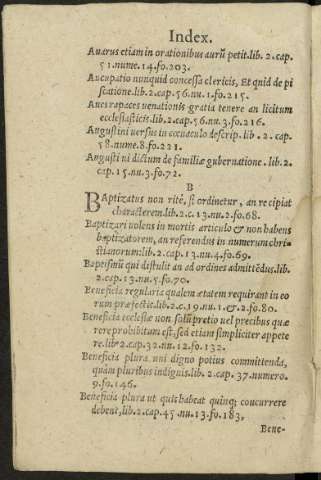 Index.
Auarus etiam in orationibus aurũ petit. lib. 2. cap.
51. nume. 14. fo. 203.
Aucupatio nunquid concessa clericis, Et quid de pi
scatione. lib. 2. cap. 56. nu. 1. fo. 215.
Aues rapaces uenationis gratia tenere an licitum
ecclesiasticis. lib. 2. cap. 56. nu. 3. fo. 216.
Augustini uersus in coenaculo descrip. lib. 2. cap.
58. nume. 8. fo. 221.
Augustini dictum de familiæ gubernatione. lib. 2.
cap. 15. nu. 3. fo. 72.
B
Baptizatus non ritè, si ordinetur, an recipiat
characterem. lib. 2. c. 13. nu. 2. fo. 68.
Baptizari uolens in mortis articulo & non habens
baptizatorem, an referendus in numerum chri
stianorum: lib. 2. cap. 13. nu. 4. fo. 69.
Baptismũ qui distulit an ad ordines admittẽdus. lib.
2. cap. 13. nu. 5. fo. 70.
Beneficia regularia qualem ætatem requirant in eo
rum præfectis. lib. 2. c. 19. nu. 1. & 2. fo. 80.
Beneficia ecclesiæ non solũ pretio uel precibus quæ
rere prohibitum est, sed etiam simpliciter appete
re. lib. 2. cap. 32. nu. 12. fo. 132.
Beneficia plura uni digno potius committenda,
quàm pluribus indignis. lib. 2. cap. 37. numero.
9. fo. 146.
Beneficia plura ut quis habeat quinq; concurrere
debent, lib. 2. cap. 45. nu. 13. fo. 183,
Bene-